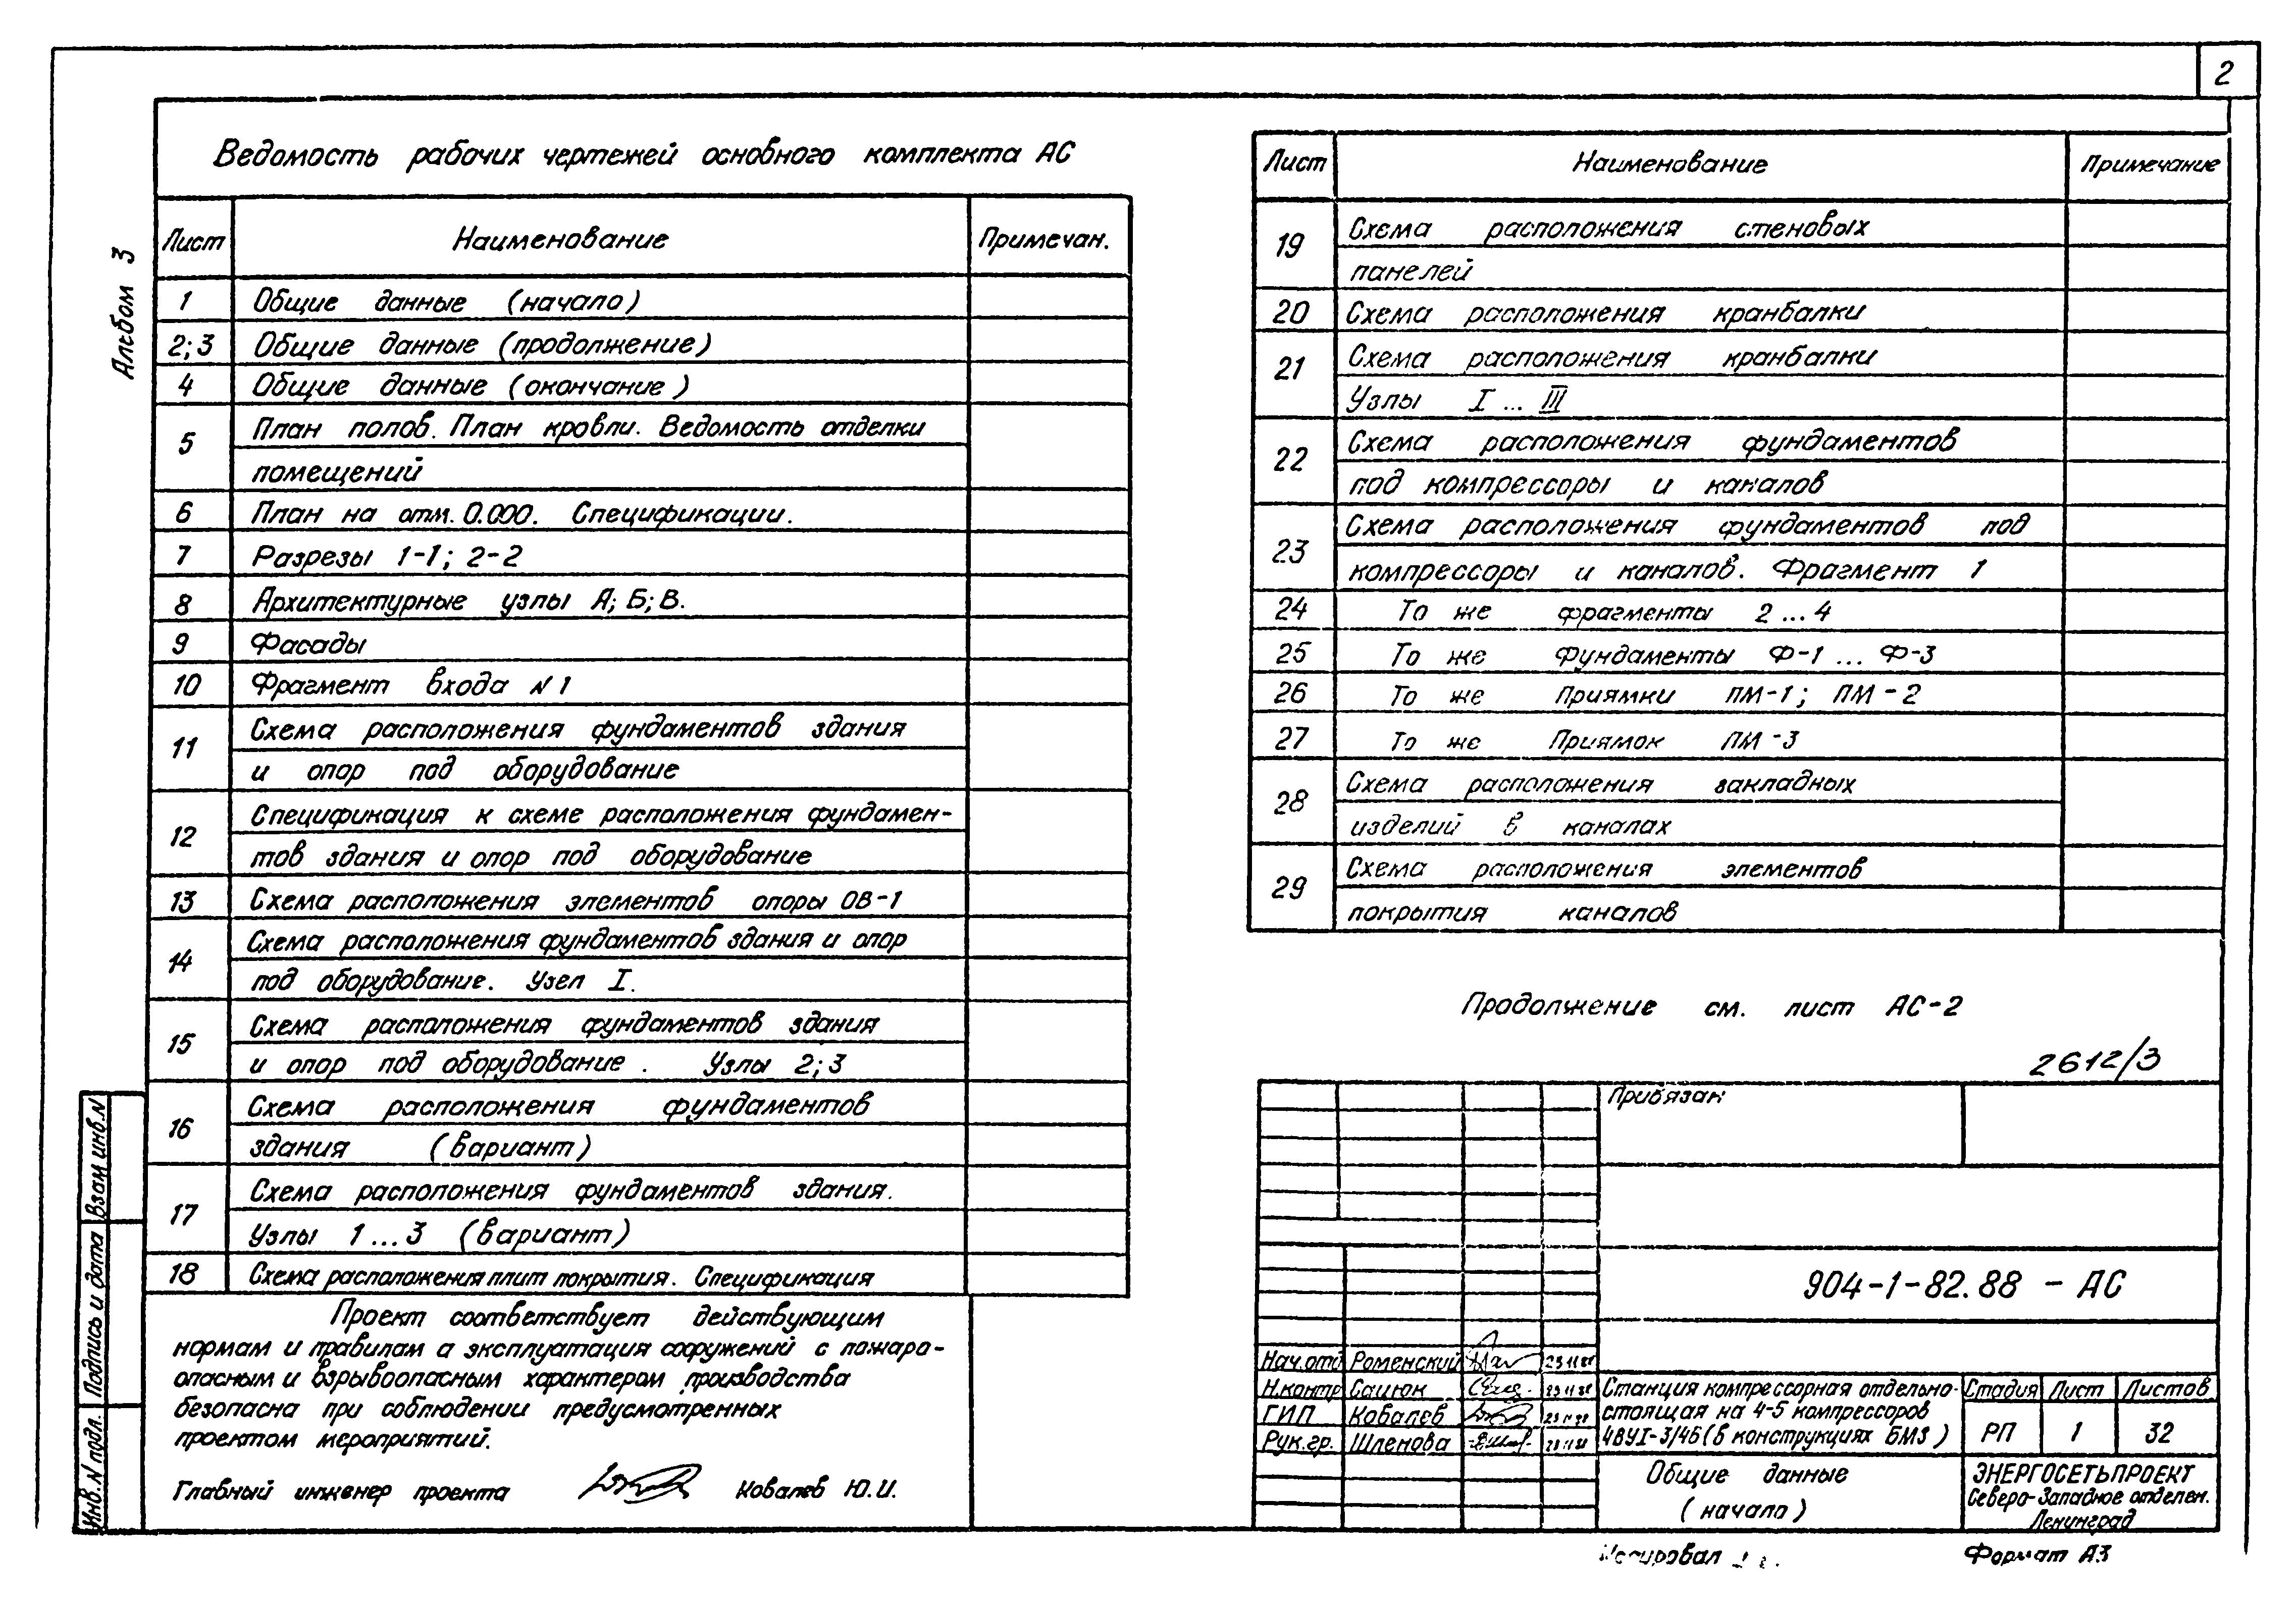 2
Альбом 3
Ведомость рабочих чертежей основного комплекта АС
Лист Наименование Примечан.
1 Общие данные (начало)
2;3 Общие данные (продолжение)
4 Общие данные (окончание)
5 План полов. План кровли. Ведомость отделки
помещений
6 План на отм. 0.000. Спецификации.
7 Разрезы 1-1; 2-2
8 Архитектурные узлы А; Б; В.
9 Фасады
10 Фрагмент входа N 1
11 Схема расположения фундаментов здания
и опор под оборудование
12 Спецификация к схеме расположения фундамен-
тов здания и опор под оборудование
13 Схема расположения элементов опоры ОВ-1
14 Схема расположения фундаментов здания и опор
под оборудование. Узел I.
15 Схема расположения фундаментов здания
и опор под оборудование. Узлы 2;3
16 Схема расположения фундаментов
здания (вариант)
17 Схема расположения фундаментов здания.
Узлы 1...3 (вариант)
18 Схема расположения плит покрытия. Спецификация
Проект соответствует действующим
нормам и правилам а эксплуатация сооружений с пожаро-
опасным и взрывоопасным характером производства
безопасна при соблюдении предусмотренных
проектом мероприятий.
Главный инженер проекта Ковалев Ю.И.
Взам инв. N
Подпись и дата
Инв. N подл.
Лист Наименование Примечание
19 Схема расположения стеновых
панелей
20 Схема расположения кранбалки
21 Схема расположения кранбалки
Узлы I ... III
22 Схема расположения фундаментов
под компрессоры и каналов
23 Схема расположения фундаментов под
компрессоры и каналов. Фрагмент 1
24 То же фрагменты 2...4
25 То же Фундаменты Ф-1 ... Ф-3
26 То же Приямки ПМ-1; ПМ-2
27 То же Приямок ПМ-3
28 Схема расположения закладных
изделий в каналах
29 Схема расположения элементов
покрытия каналов
Продолжение см. лист АС-2
2612/3
Привязан
904-1-82.88 - АС
Нач.отд Роменский
Н.контр Сацюк
ГИП Ковалев
Рук.гр. Шленова
Станция компрессорная отдельно-
стоящая на 4-5 компрессоров
4ВУ1-3/46 (в конструкциях БМЗ)
Стадия Лист Листов
РП 1 32
Общие данные
(начало)
ЭНЕРГОСЕТЬПРОЕКТ
Северо-Западное отделен.
Ленинград
Копировал
Формат А3